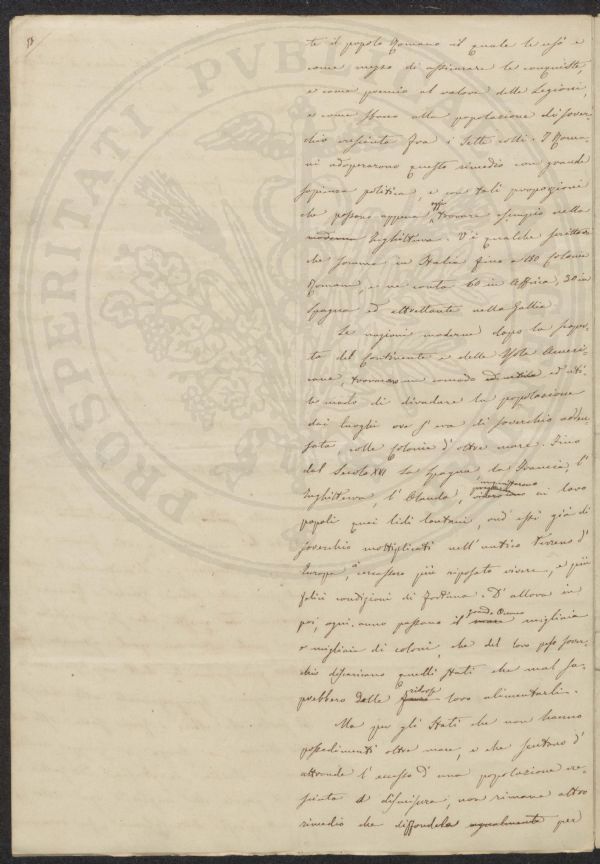 te il popolo Romano il quale le usò e
come mezzo di assicurare le conquiste,
e come premio al valore delle Legioni,
e come sfogo alla popolazione di sover-
chio cresciuta fra i Sette colli. I Roma-
ni adoperarono questo rimedio con grande
sapienza politica, e con tali proporzioni
che possono appena trovare esempio nella
moderna Inghilterra. V'è qualche scrittore
che somma in Italia fino a 180 Colonie
Romane, e ne conta 60 in Affrica, 30 in
Spagna ed altrettante nella Gallia
Le nazioni moderne dopo la scoper-
ta del Continente e delle Isole Ameri-
cane, trovarono un comodo ed uti-
le modo di diradare la popolazione
dai luoghi ove s'era di soverchio adden-
sata, colle Colonie d'oltre mare. Fino
dal Secolo XVI la Spagna, la Francia, l'
Inghilterra, l'Olanda, ai loro
popoli quei lidi lontani, ond'essi già di
soverchio moltiplicati nell'antico terreno d'
Europa, cercassero più riposato vivere, e più
felici condizioni di fortuna. D'allora in
poi, ogni anno passano il grande Oceano migliaia
e migliaia di coloni, che del loro peso sover-
chio discaricano quelli Stati che mal sa-
prebbero dalle zolle loro alimentarli.
Ma per gli Stati che non hanno
possedimenti oltre mare, e che sentono d'
altronde l'eccesso d'una popolazione cre-
sciuta a dismisura, non rimane altro
rimedio che diffonderla egualmente per
PROSPERITATI PVBLICA